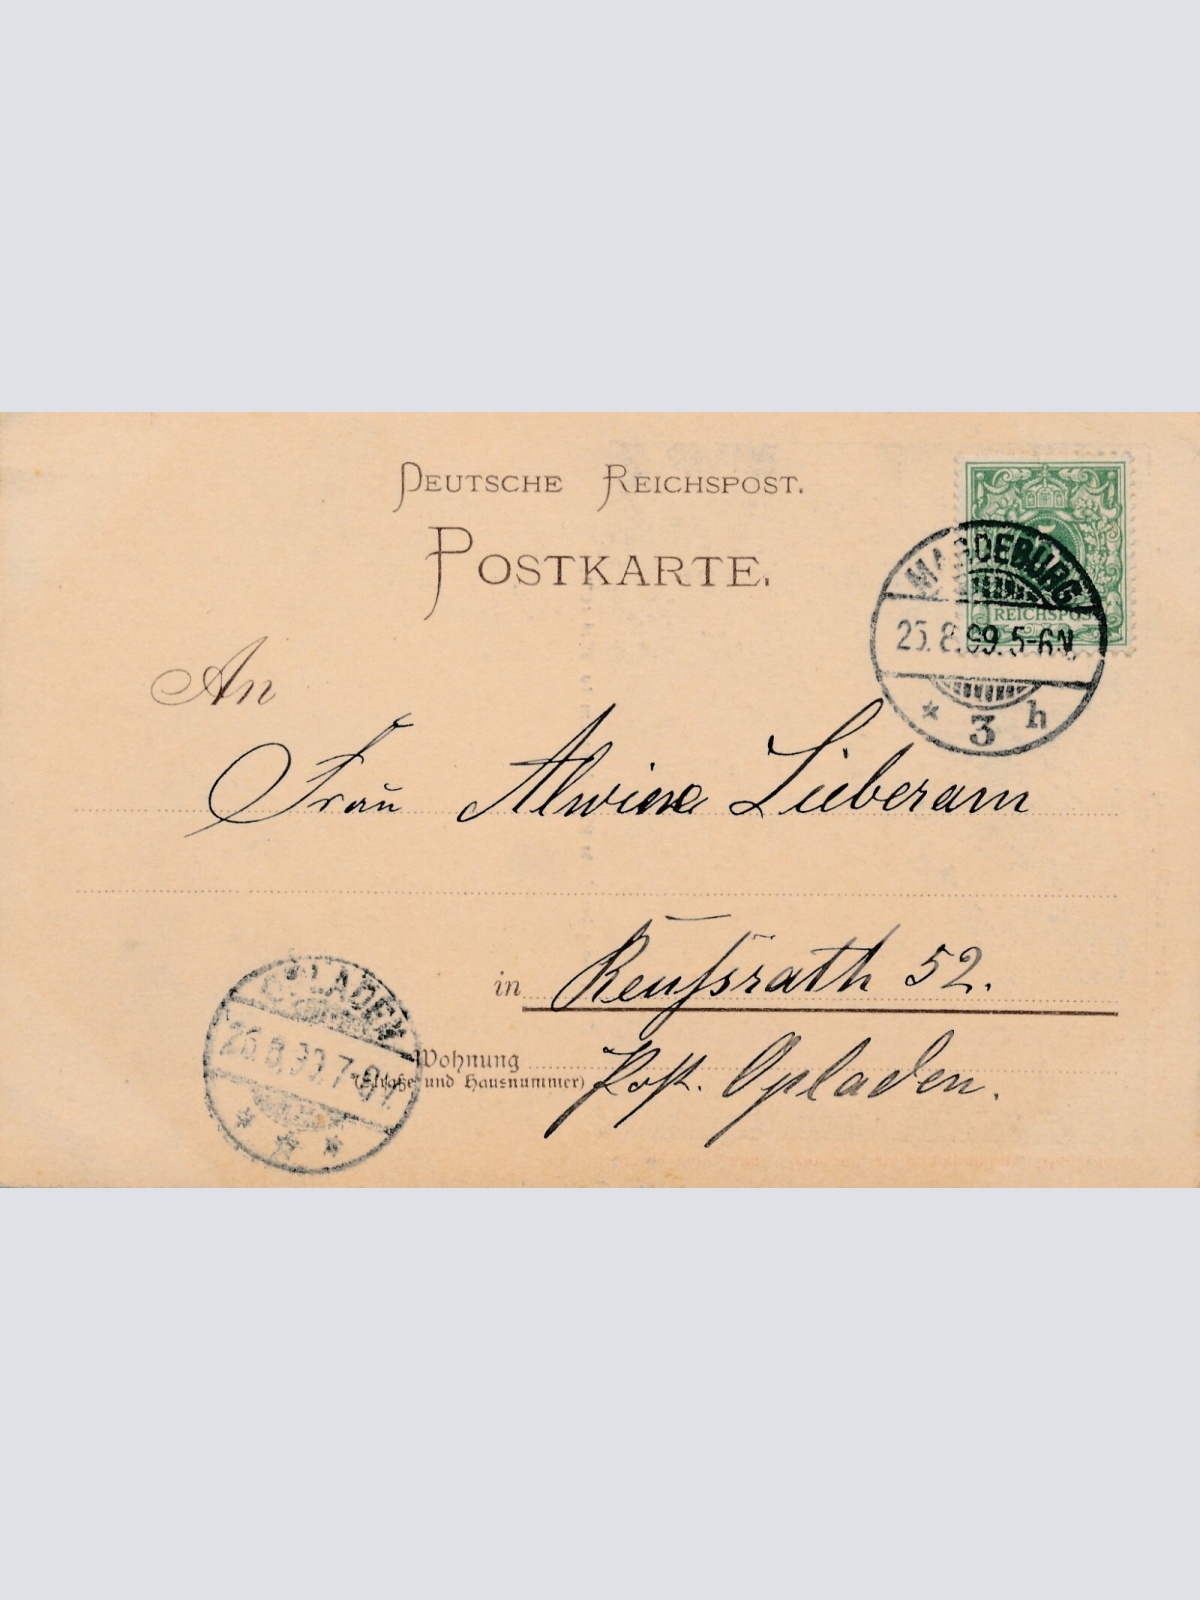 DEUTSCHE REICHSPOST.
POSTKARTE.
REICHSPOST
MAGDEBURG
25.8.99.5-6N.
* 3 h
An
Frau Alwine Lieberam
in Reußrath 52.
OPLADEN
26.8.99.7-8V.
* * *
Wohnung
(Straße und Hausnummer)
Post. Opladen.